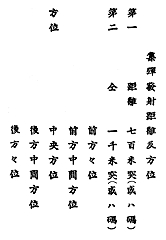 集彈發射距離及方位
第一 距離 七百米突(或ハ碼)
第二 仝 一千米突(或ハ碼)
方位 前方々位
前方中間方位
中央方位
後方中間方位
後方々位